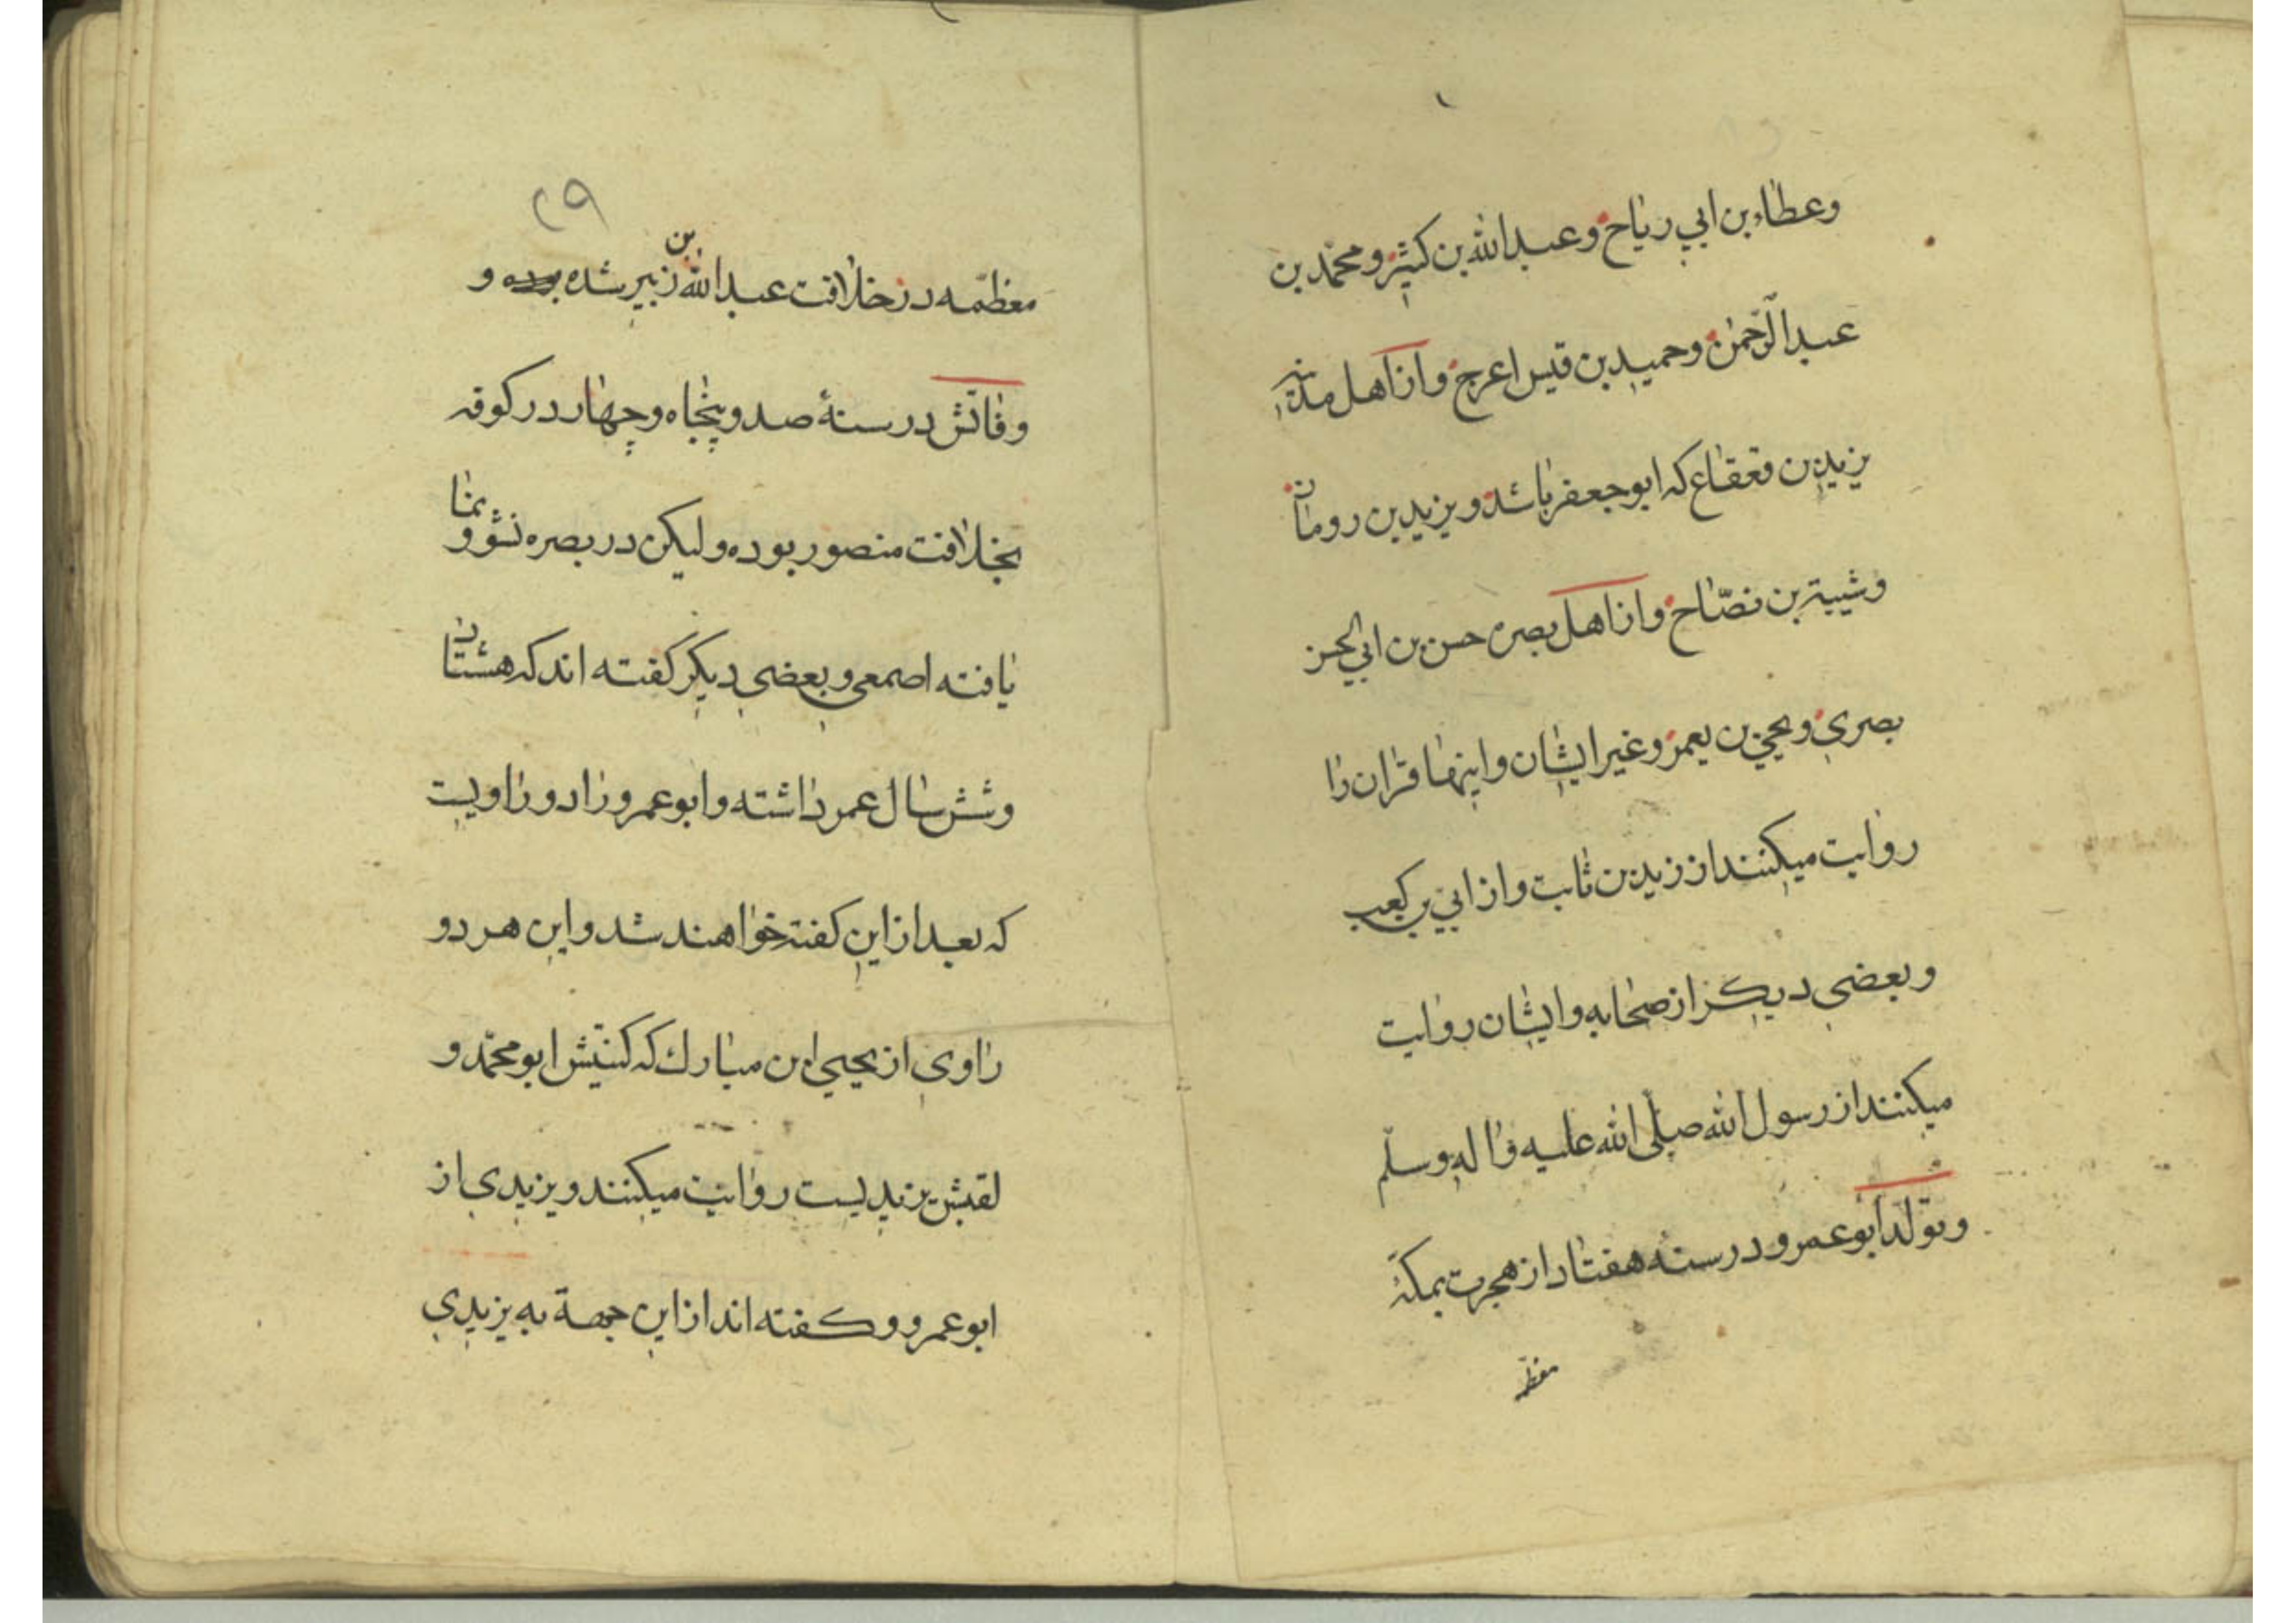 وعطاء بن ابي رياح وعبدالله بن كثير و محمّد بن
عبدالرّحمن وحميد بن قيس اعرج و از اهل مدينه
يزيد بن قعقاع كه ابوجعفر باشد و يزيد بن رومان
وشيبة بن نصّاح و از اهل بصره حسن بن ابي الحسن
بصري و يحيي بن يعمر و غير ايشان و اينها قران را
روايت ميكنند از زيد بن ثابت و از ابيّ بن كعب
و بعضي ديكر از صحابه و ايشان روايت
ميكنند از رسول الله صلّى الله عليه و اله وسلّم
و تولّد ابوعمرو در سنه هفتاد از هجرت بمكّهٔ
معظّمه
٢٩
معظّمه در خلافت عبدالله بن زبير شده بوده و
وفاتش در سنهٔ صد و پنجاه و چهار در كوفه
بخلافت منصور بوده وليكن در بصره نشو و نما
يافته اصمعي و بعضي ديكر كفته اند كه هشتاد
و شش سال عمر داشته و ابوعمرو را دو راويست
كه بعد از اين كفته خواهند شد و اين هر دو
راوي از يحيي ابن مبارك كه كنيتش ابو محمّد و
لقبش يزيديست روايت ميكنند و يزيدي از
ابوعمرو و كفته اند از اين جهة به يزيدي